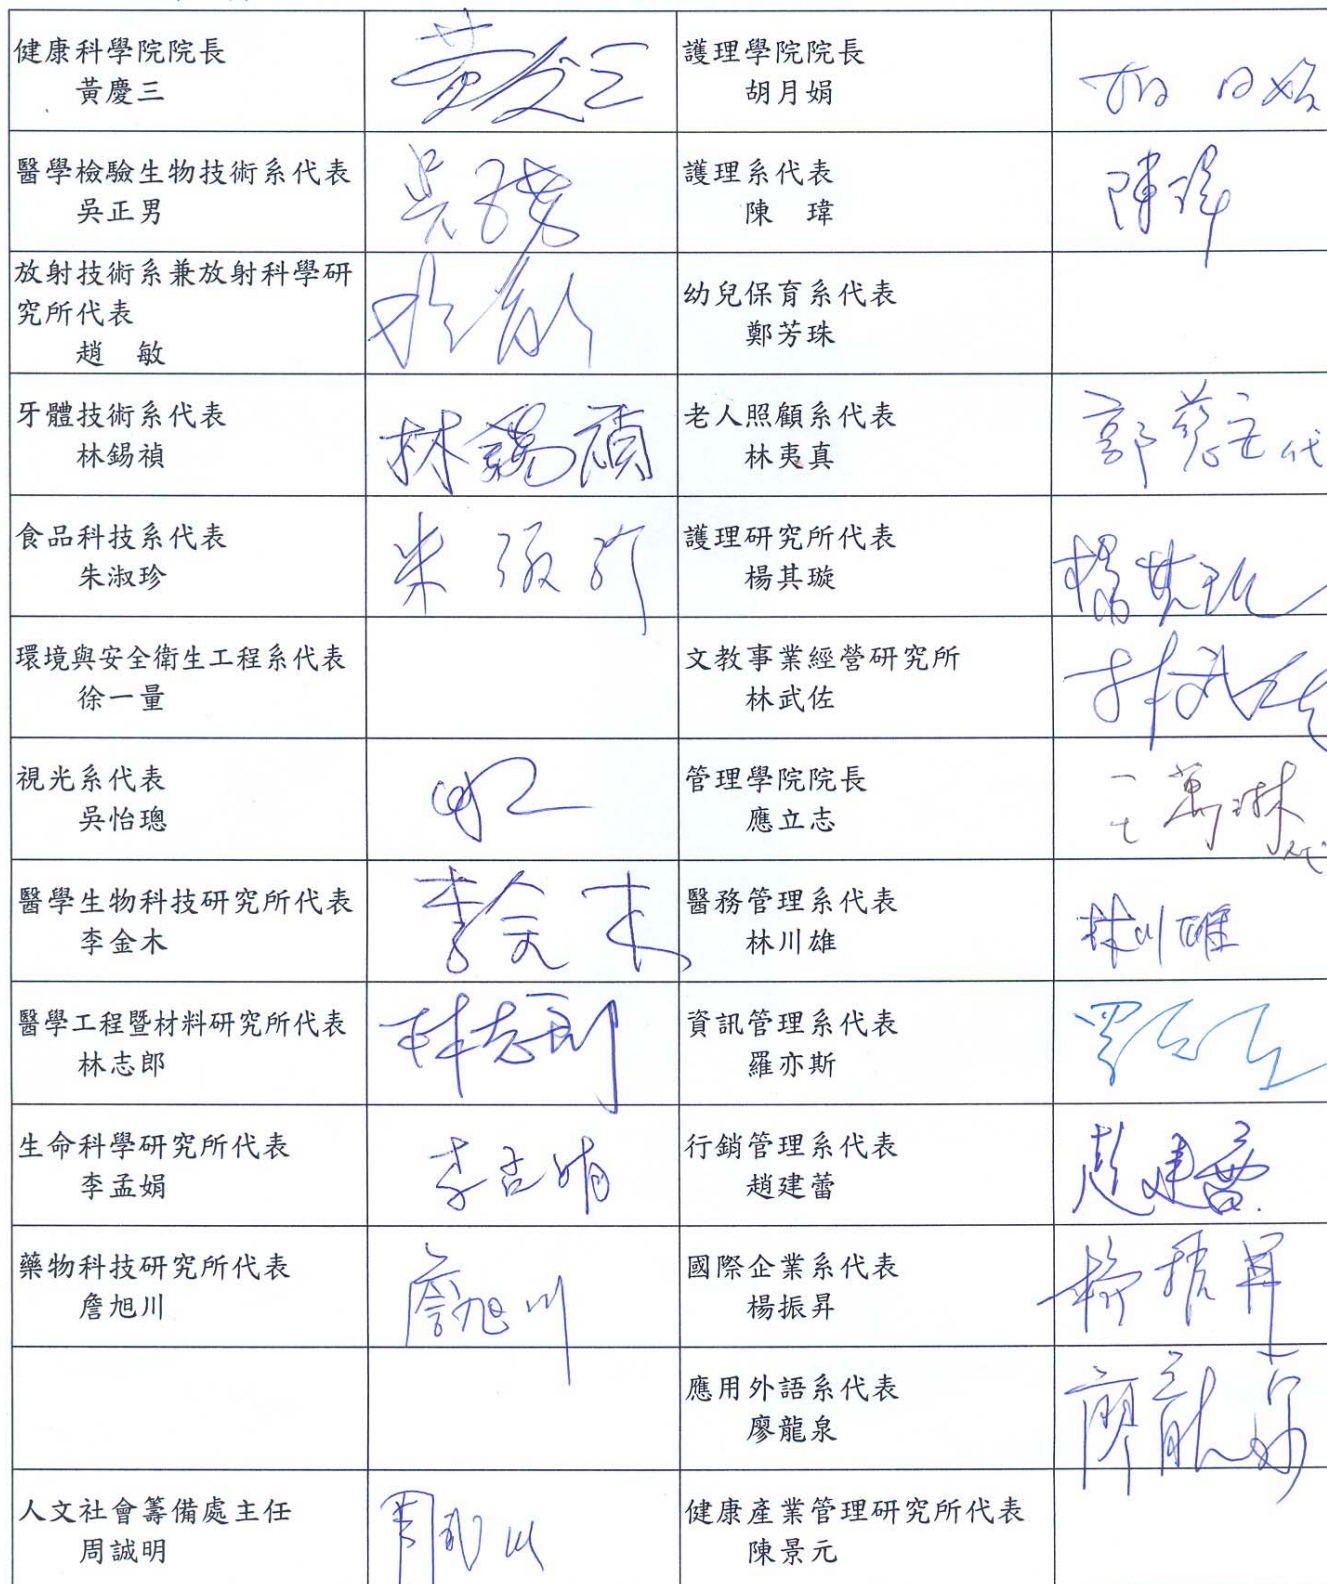 健康科學院院長
黃慶三
黃慶三
護理學院院長
胡月娟
醫學檢驗生物技術系代表
吳正男
護理系代表
陳 瑋
陳瑋
放射技術系兼放射科學研
究所代表
趙 敏
幼兒保育系代表
鄭芳珠
牙體技術系代表
林錫禎
林錫禎
老人照顧系代表
林夷真
代
食品科技系代表
朱淑珍
護理研究所代表
楊其璇
環境與安全衛生工程系代表
徐一量
文教事業經營研究所
林武佐
林武佐
視光系代表
吳怡璁
管理學院院長
應立志
王萬琳
代
醫學生物科技研究所代表
李金木
李金木
醫務管理系代表
林川雄
林川雄
醫學工程暨材料研究所代表
林志郎
林志郎
資訊管理系代表
羅亦斯
生命科學研究所代表
李孟娟
李孟娟
行銷管理系代表
趙建蕾
趙建蕾
藥物科技研究所代表
詹旭川
詹旭川
國際企業系代表
楊振昇
楊振昇
應用外語系代表
廖龍泉
人文社會籌備處主任
周誠明
健康產業管理研究所代表
陳景元